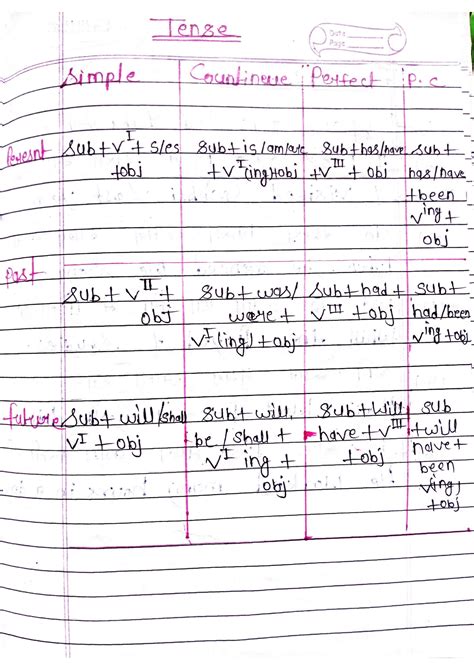 Tense
Date
Page
Simple Countineue Perfect P.C
Pwesnt
Sub+V^I+s/es
+obj
Sub+is/am/are
+V^I(ing)+obj
Sub+has/have
+V^III + obj
Sub+
has/have
+been
V^ing+
obj
Past
Sub+V^II+
obj
Sub+was/
were +
V^I(ing)+obj
Sub+had+
V^III +obj
Sub+
had/been
V^ing+obj
future
Sub+will/shall
V^I + obj
Sub+will,
be/shall +
V^I ing +
obj
Sub+will
have+V^III
+obj
Sub
+will
have+
been
V(ing)
+obj